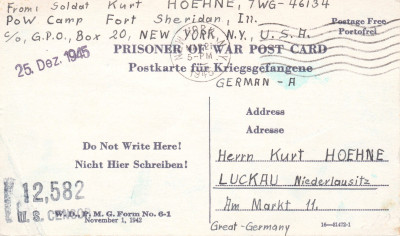 From: Soldat Kurt HOEHNE, 7WG-46134
POW Camp Fort Sheridan, Ill.
c/o, G.P.O., Box 20, NEW YORK, N.Y., U.S.A.
Postage Free
Portofrei
25. Dez. 1945
5-PM
1945
PRISONER OF WAR POST CARD
Postkarte für Kriegsgefangene
GERMAN-A
Address
Adresse
Do Not Write Here!
Nicht Hier Schreiben!
Herrn Kurt HOEHNE
LUCKAU Niederlausitz
Am Markt 11.
Great-Germany
12,582
U.S. CENSOR
W. D., P. M. G. Form No. 6-1
November 1, 1942
16-81472-1